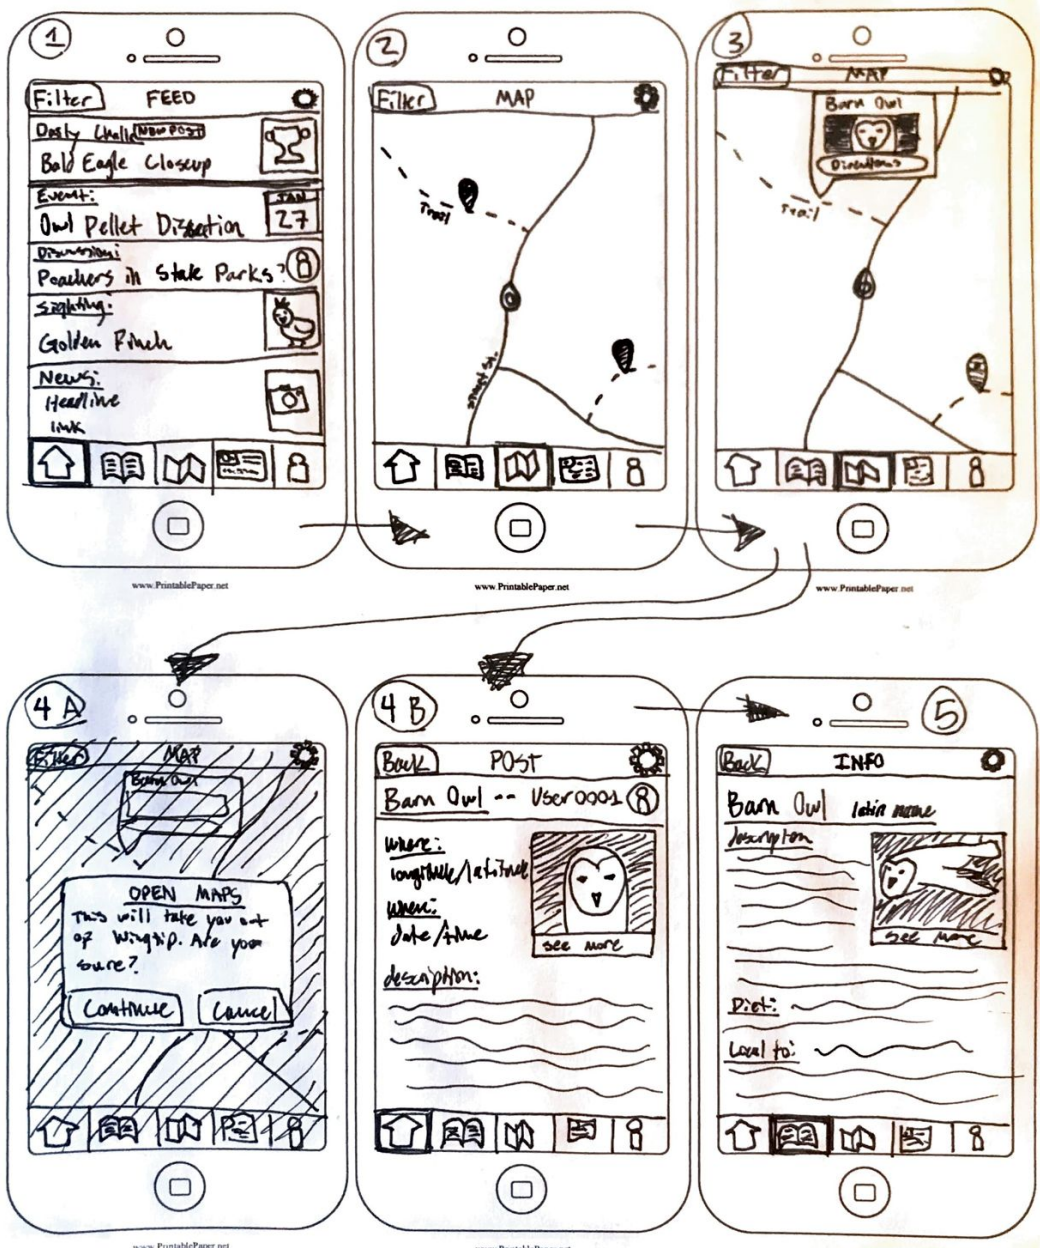 1
Filter FEED
Daily Chall NEW POST
Bald Eagle Closeup
Event:
JAN
Owl Pellet Dissection 27
Discussion:
Poachers in State Parks?
Sighting:
Golden Finch
News:
Headline
link
www.PrintablePaper.net
2
Filter MAP
Trail
Street St.
www.PrintablePaper.net
3
Filter MAP
Barn Owl
Directions
Trail
www.PrintablePaper.net
4A
Filter MAP
Barn Owl
OPEN MAPS
This will take you out
of Wingtip. Are you
sure?
Continue Cancel
www.PrintablePaper.net
4B
Back POST
Barn Owl -- User0001
Where:
longitude/latitude
When:
date/time
see more
description:
www.PrintablePaper.net
5
Back INFO
Barn Owl latin name
description
see more
Diet:
Local to: